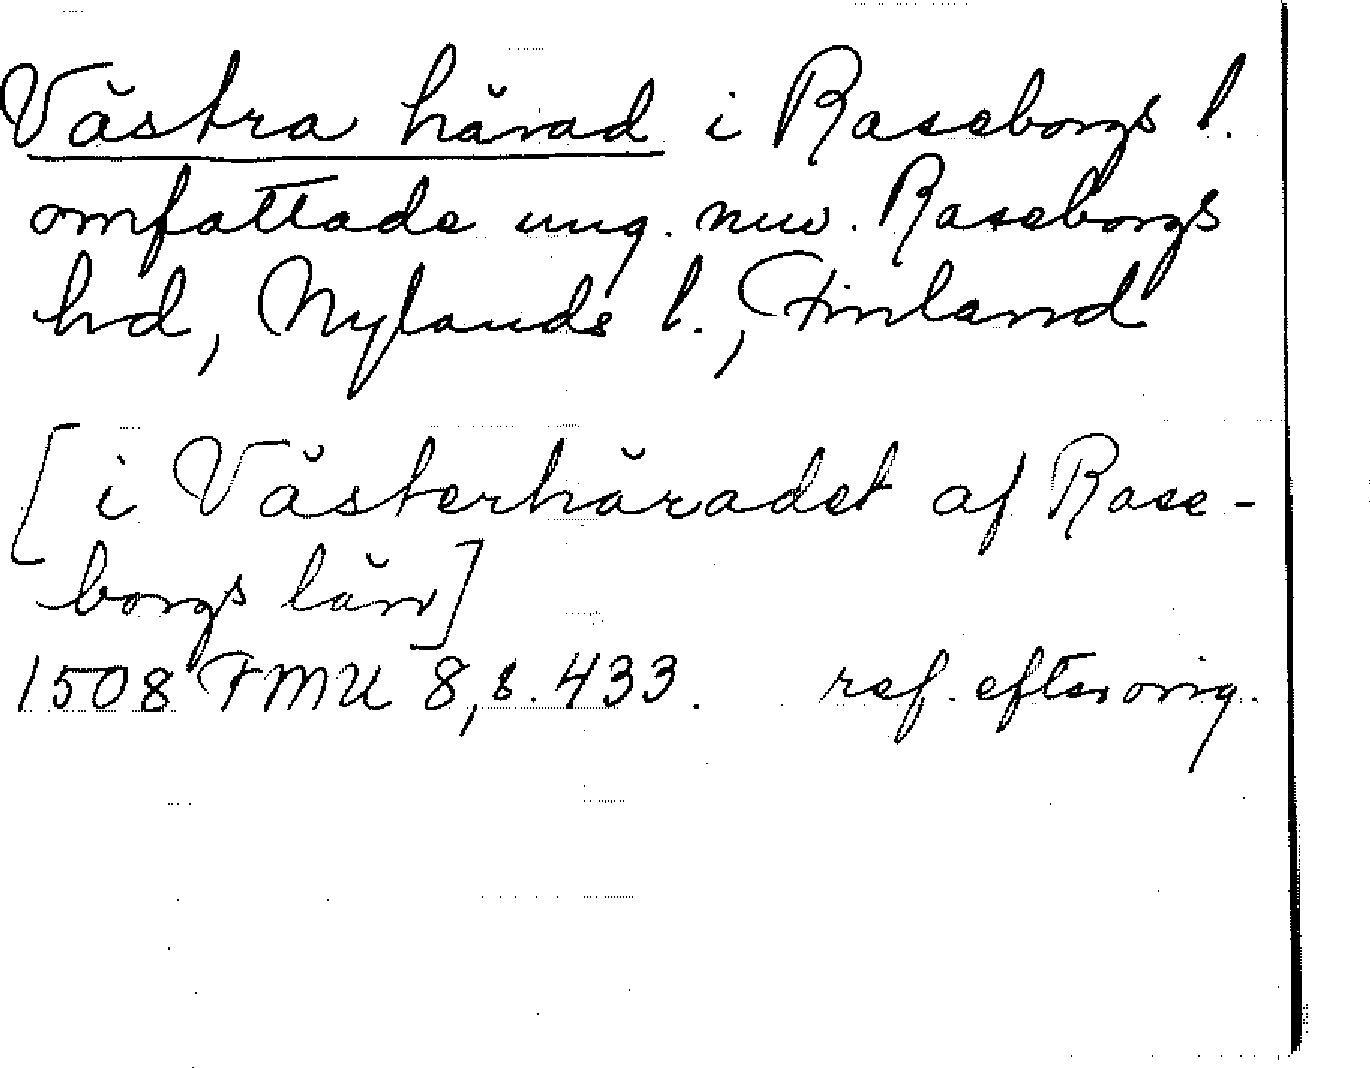 Västra härad i Raseborgs l.
omfattade ung. nuv. Raseborgs
hd, Nylands l., Finland
[i Västerhäradet af Rase-
borgs län]
1508 FMU 8, s. 433. ref. efter orig.